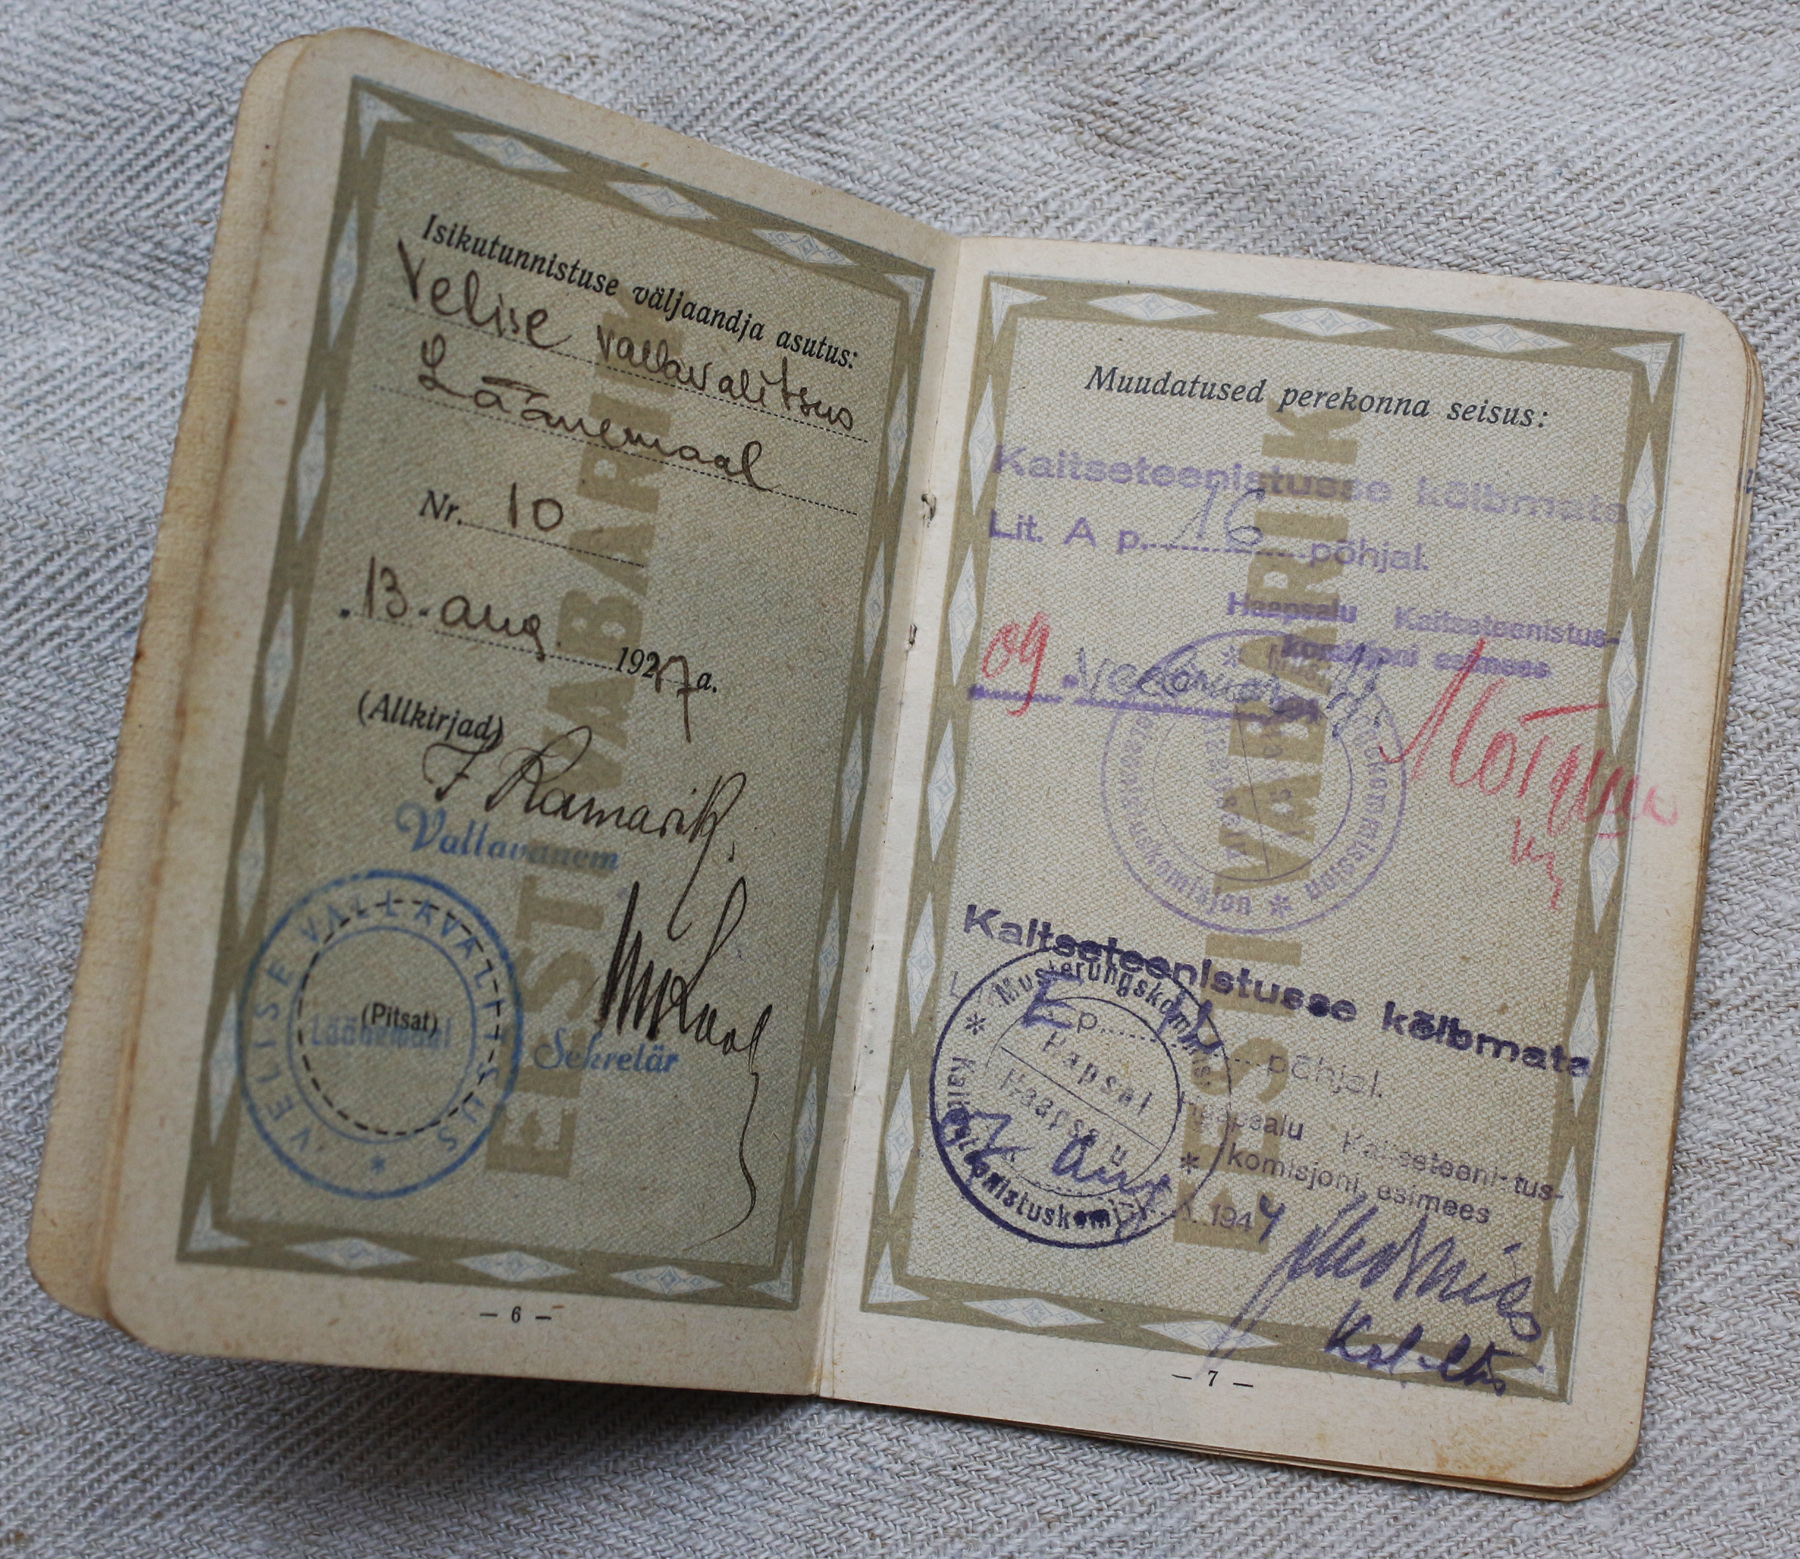 Isikutunnistuse väljaandja asutus:
Velise vallavalitsus
Läänemaal
Nr. 10
13. aug. 1927 a.
(Allkirjad)
Vallavanem
VELISE VALLAVALITSUS
(Pitsat)
Läänemaal
Sekretär
EESTI VABARIIK
— 6 —
Muudatused perekonna seisus:
Kaitseteenistusse kõlbmata
Lit. A p. 16 põhjal.
Haapsalu Kaitseteenistus-
komisjoni esimees
09
Kaitseteenistusse kõlbmata
E p. põhjal.
Musterungskommis.
Hapsal
Haapsalu
Kaitseteenistuskomisj.
Haapsalu Kaitseteenistus-
komisjoni esimees
1944
EESTI VABARIIK
— 7 —